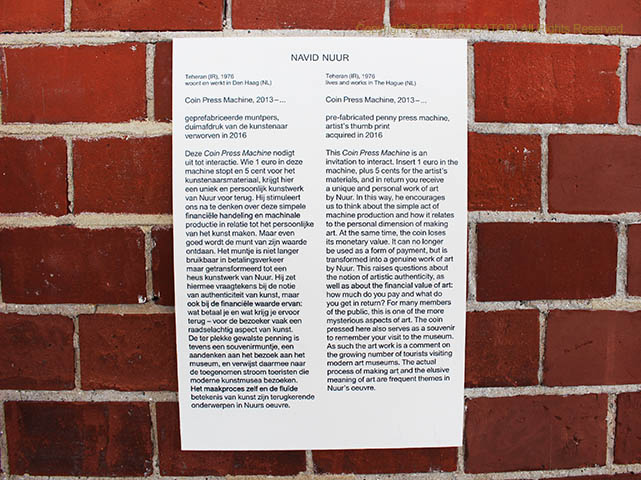 Copyright © PARFUM SATORI All Rights Reserved
NAVID NUUR
Teheran (IR), 1976
woont en werkt in Den Haag (NL)
Coin Press Machine, 2013–...
geprefabriceerde muntpers,
duimafdruk van de kunstenaar
verworven in 2016
Deze Coin Press Machine nodigt
uit tot interactie. Wie 1 euro in deze
machine stopt en 5 cent voor het
kunstenaarsmateriaal, krijgt hier
een uniek en persoonlijk kunstwerk
van Nuur voor terug. Hij stimuleert
ons na te denken over deze simpele
financiële handeling en machinale
productie in relatie tot het persoonlijke
van het kunst maken. Maar even
goed wordt de munt van zijn waarde
ontdaan. Het muntje is niet langer
bruikbaar in betalingsverkeer
maar getransformeerd tot een
heus kunstwerk van Nuur. Hij zet
hiermee vraagtekens bij de notie
van authenticiteit van kunst, maar
ook bij de financiële waarde ervan:
wat betaal je en wat krijg je ervoor
terug – voor de bezoeker vaak een
raadselachtig aspect van kunst.
De ter plekke gewalste penning is
tevens een souvenirmuntje, een
aandenken aan het bezoek aan het
museum, en verwijst daarmee naar
de toegenomen stroom toeristen die
moderne kunstmusea bezoeken.
Het maakproces zelf en de fluïde
betekenis van kunst zijn terugkerende
onderwerpen in Nuurs oeuvre.
Teheran (IR), 1976
lives and works in The Hague (NL)
Coin Press Machine, 2013–...
pre-fabricated penny press machine,
artist's thumb print
acquired in 2016
This Coin Press Machine is an
invitation to interact. Insert 1 euro in the
machine, plus 5 cents for the artist's
materials, and in return you receive
a unique and personal work of art
by Nuur. In this way, he encourages
us to think about the simple act of
machine production and how it relates
to the personal dimension of making
art. At the same time, the coin loses
its monetary value. It can no longer
be used as a form of payment, but is
transformed into a genuine work of art
by Nuur. This raises questions about
the notion of artistic authenticity, as
well as about the financial value of art:
how much do you pay and what do
you get in return? For many members
of the public, this is one of the more
mysterious aspects of art. The coin
pressed here also serves as a souvenir
to remember your visit to the museum.
As such the art work is a comment on
the growing number of tourists visiting
modern art museums. The actual
process of making art and the elusive
meaning of art are frequent themes in
Nuur's oeuvre.